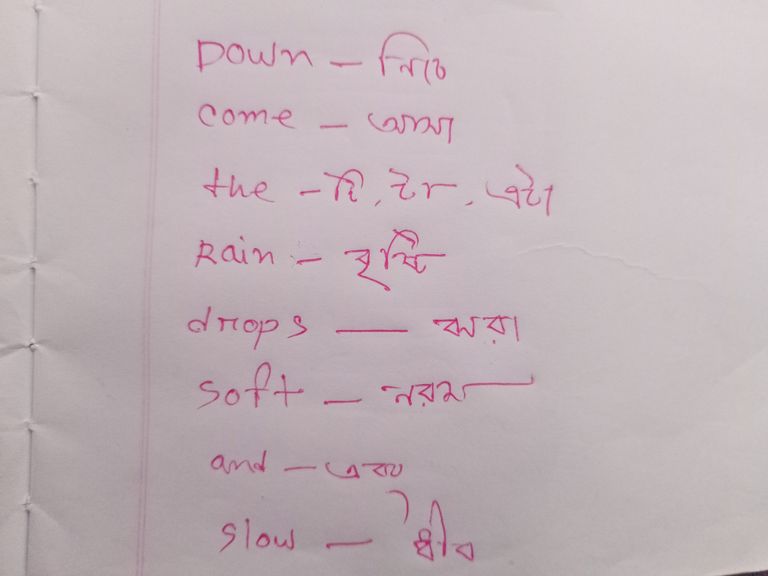 Down - নিচে
come - আসা
the - দি, টা, এটা
Rain - বৃষ্টি
drops — ঝরা
soft - নরম
and - এবং
slow - ধীর